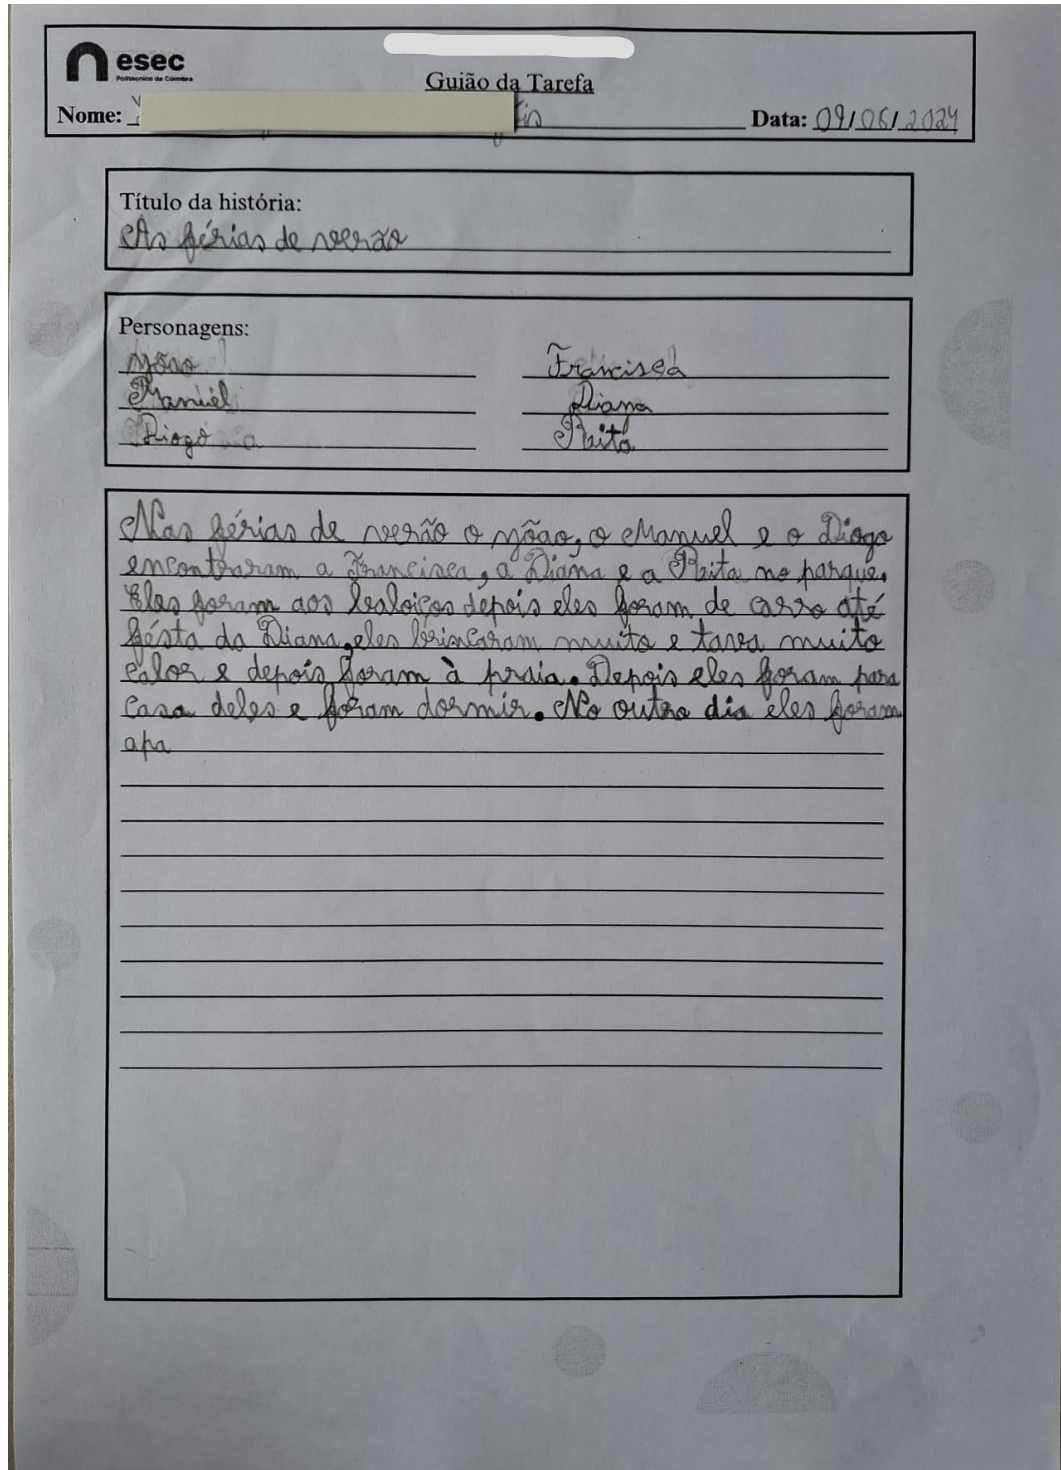 esec
Politécnico de Coimbra
Guião da Tarefa
Nome: Data: 09/06/2024
Título da história:
As férias de verão
Personagens:
João Francisca
Manuél Diana
Diogo Rita
Nas férias de verão o João, o Manuel e o Diogo
encontraram a Francisca, a Diana e a Rita no parque.
Eles foram aos baloiços depois eles foram de carro até
fésta da Diana, eles brincaram muito e tava muito
calor e depois foram à praia. Depois eles foram para
casa deles e foram dormir. No outro dia eles foram
apa